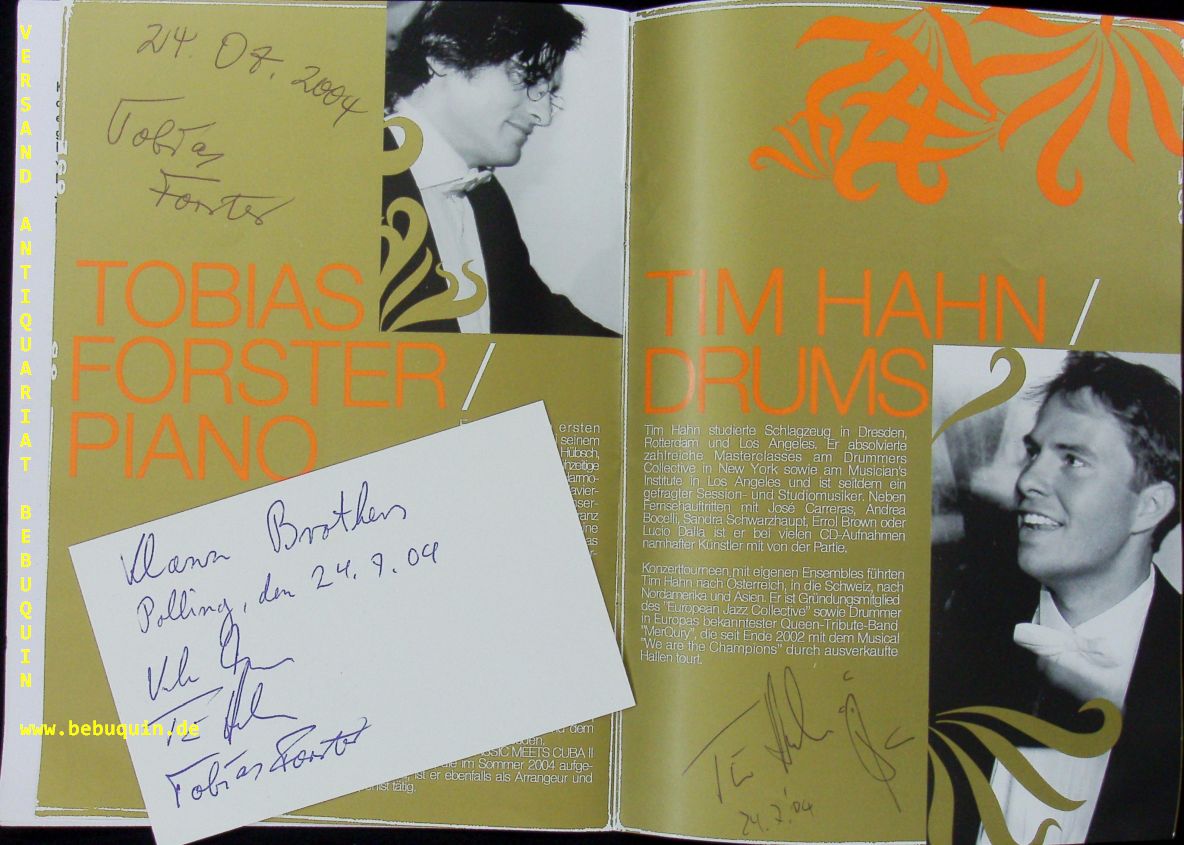 VERSAND ANTIQUARIAT BEBUQUIN
www.bebuquin.de
24. 07. 2004
Tobias
Forster
TOBIAS
FORSTER /
PIANO
ersten
seinem
Hübsch,
Brothers
Polling, den 24. 7. 04
Tobias Forster
SSIC MEETS CUBA II
im Sommer 2004 aufge-
ist er ebenfalls als Arrangeur und
tätig.
TIM HAHN /
DRUMS
Tim Hahn studierte Schlagzeug in Dresden,
Rotterdam und Los Angeles. Er absolvierte
zahlreiche Masterclasses am Drummers
Collective in New York sowie am Musician's
Institute in Los Angeles und ist seitdem ein
gefragter Session- und Studiomusiker. Neben
Fernsehauftritten mit José Carreras, Andrea
Bocelli, Sandra Schwarzhaupt, Errol Brown oder
Lucio Dalla ist er bei vielen CD-Aufnahmen
namhafter Künstler mit von der Partie.
Konzerttourneen mit eigenen Ensembles führten
Tim Hahn nach Österreich, in die Schweiz, nach
Nordamerika und Asien. Er ist Gründungsmitglied
des "European Jazz Collective" sowie Drummer
in Europas bekanntester Queen-Tribute-Band
"MerQury", die seit Ende 2002 mit dem Musical
"We are the Champions" durch ausverkaufte
Hallen tourt.
24.7.'04